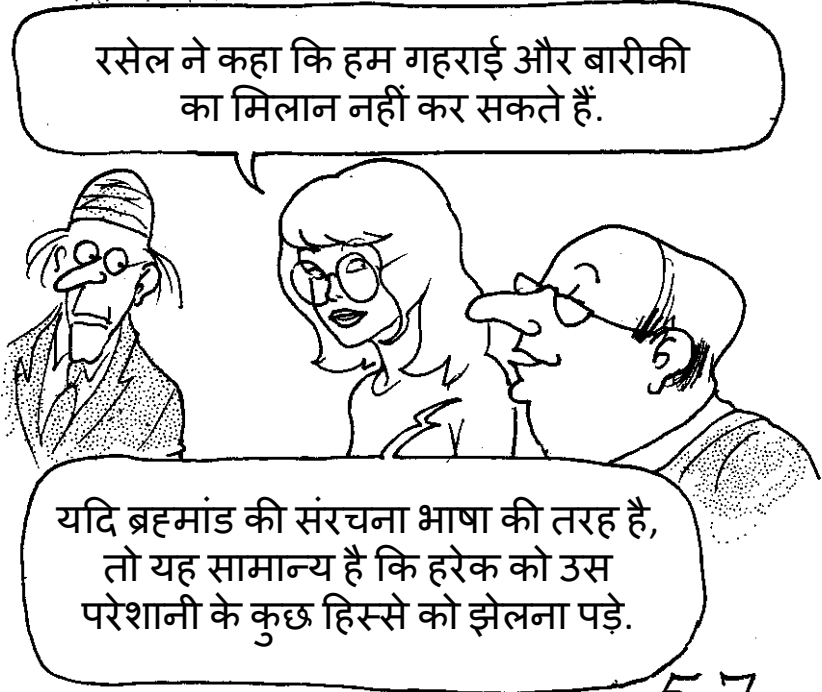 रसेल ने कहा कि हम गहराई और बारीकी
का मिलान नहीं कर सकते हैं.
यदि ब्रह्मांड की संरचना भाषा की तरह है,
तो यह सामान्य है कि हरेक को उस
परेशानी के कुछ हिस्से को झेलना पड़े.
57